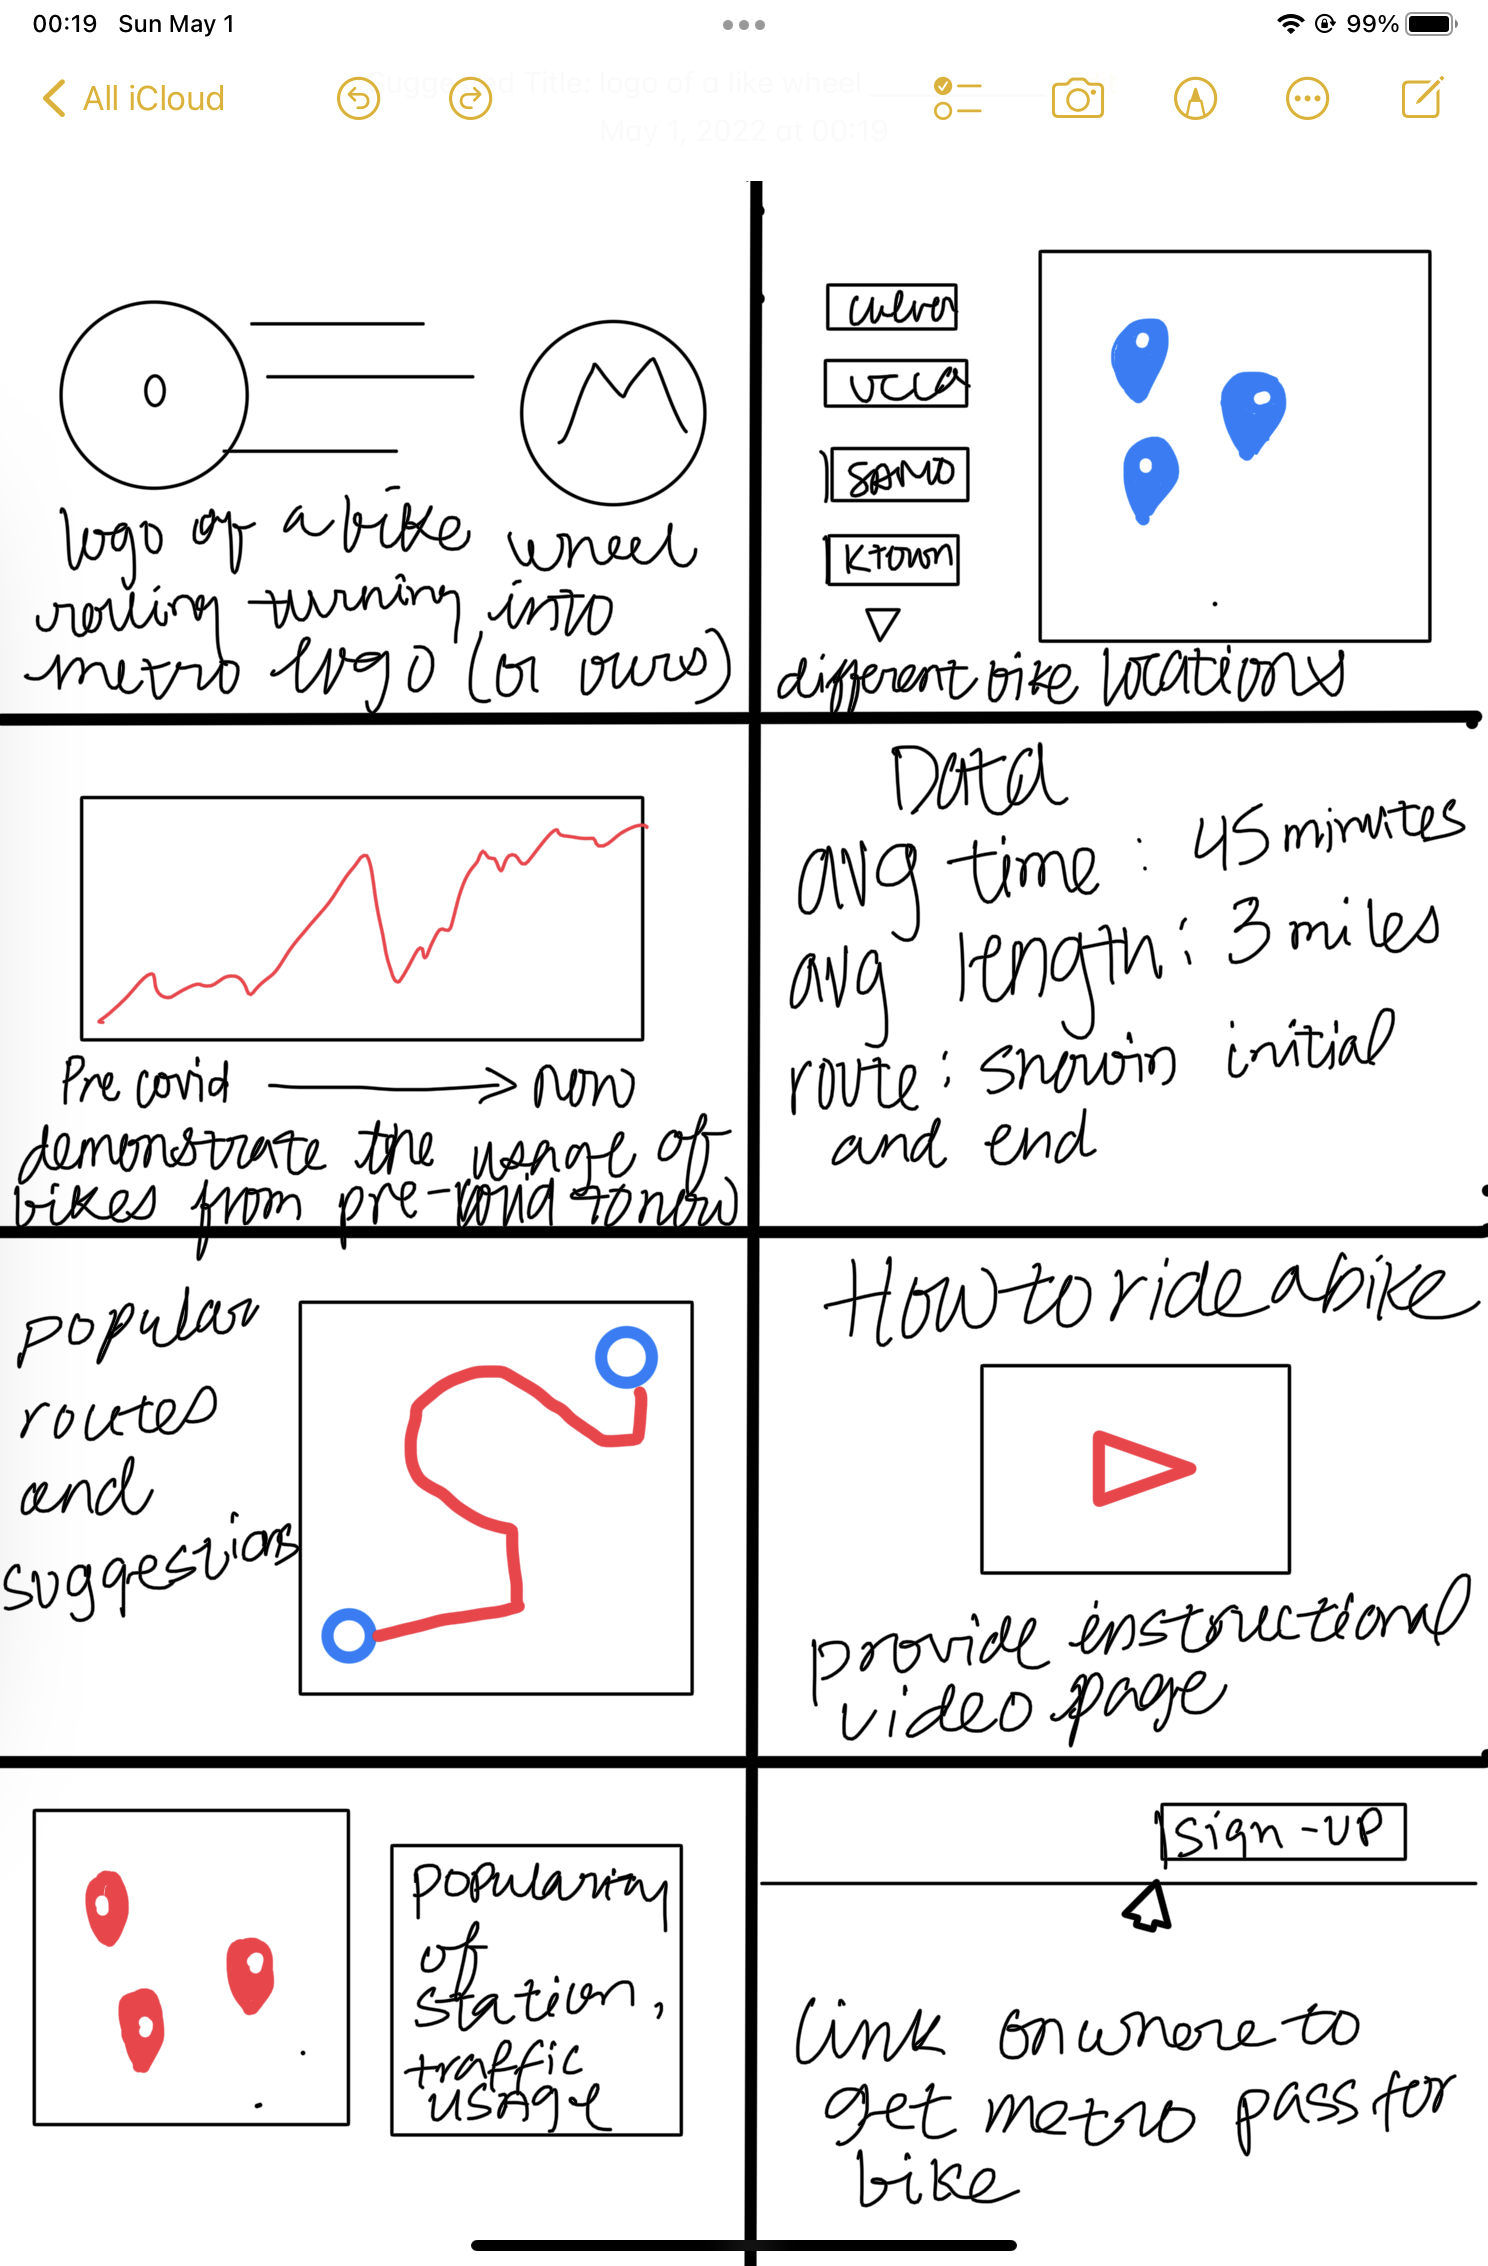 00:19 Sun May 1
99%
All iCloud
Suggested Title: logo of a like wheel
May 1, 2022 at 00:19
logo of a bike wheel
rolling turning into
metro logo (or ours)
culver
UCLA
SAMO
Ktown
different bike locations
Pre covid → now
demonstrate the usage of
bikes from pre-covid to now
Data
avg time : 45 minutes
avg length : 3 miles
route : showin initial
and end
popular
routes
and
suggestions
How to ride a bike
provide instructional
video page
popularity
of
station,
traffic
usage
sign-up
link on where to
get metro pass for
bike